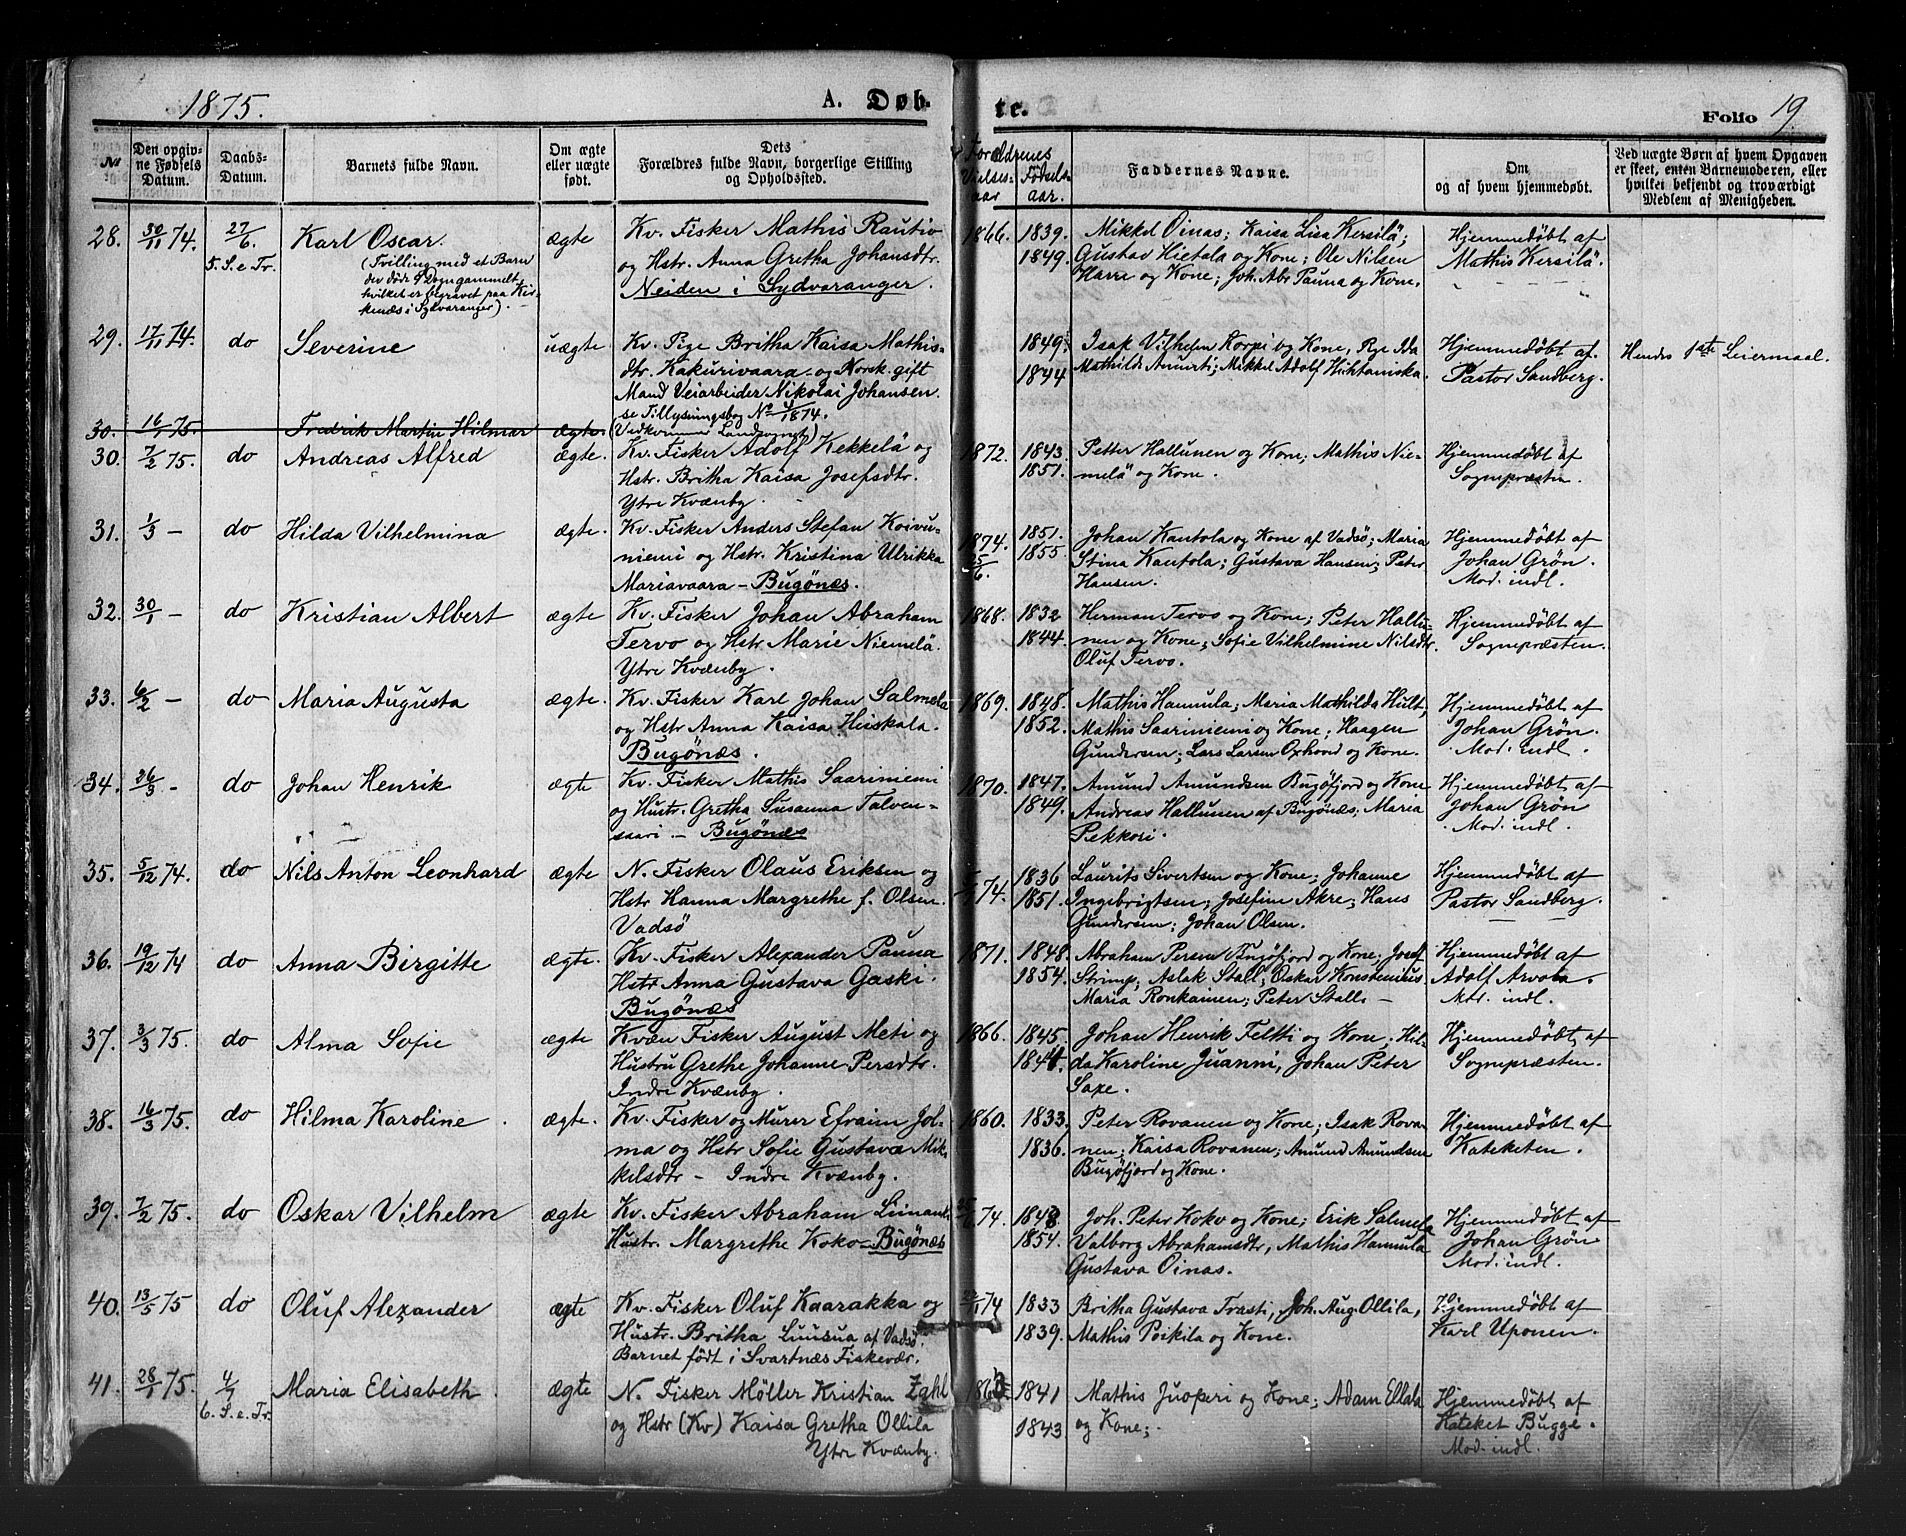 1875.
A. Døb-
te.
Folio 19
№
Den opgiv-
ne Fødsels
Datum.
Daabs-
Datum.
Barnets fulde Navn.
Om ægte
eller uægte
født.
Dets
Forældres fulde Navn, borgerlige Stilling
og Opholdssted.
Forældrenes
Vielses-
aar
Fødsels-
aar.
Faddernes Navne.
Om
og af hvem hjemmedøbt.
Ved uægte Børn af hvem Opgaven
er skeet, enten Barnemoderen, eller
hvilket bekjendt og troværdigt
Medlem af Menigheden.
28. 30/11 74. 27/6. 5. S. e. Tr.
Karl Oscar.
(Tvilling med et Barn
der døde 9 Dogn gammelt,
hvilket er begravet paa Kir-
kenæs i Sydvaranger).
ægte
Kv. Fisker Mathis Rautio
og Hstr. Anna Gretha Johansdtr.
Neiden i Sydvaranger.
1866. 1839.
1849.
Mikkel Oinas; Kaisa Lisa Kersilä;
Gustav Hietala og Kone; Ole Nilsen
Harre og Kone; Joh. Abr Pauna og Kone.
Hjemmedøbt af
Mathis Kersilä.
29. 17/11 74. do
Severine
uægte
Kv. Pige Britha Kaisa Mathis-
dtr. Kakurivaara og Norsk gift
Mand Veiarbeider Nikolai Johansen.
se Tillysningsbog No 4/1874.
1849.
1844
Isak Vilhelm Korpi og Kone, Pge Ida
Mathilde Anunti; Mikkel Adolf Huhtaniska
Hjemmedøbt af
Pastor Sandberg.
Hendes 1ste Leiermaal.
30. 16/1 75. Fredrik Martin Hilmar ægte. (Vedkommer Landsognet)
30. 7/2 75. do
Andreas Alfred
ægte.
Kv. Fisker Adolf Kekkelä og
Hstr. Britha Kaisa Josefsdtr.
Ytre Kvænby.
1872. 1843.
1851.
Petter Hallunen og Kone; Mathis Nie-
melä og Kone.
Hjemmedøbt af
Sognepræsten.
31. 1/3 - do
Hilda Vilhelmina
ægte.
Kv. Fisker Anders Stefan Koivu-
niemi og Hstr. Kristina Ulrikka
Mariavaara - Bugönæs.
1874.
25/6.
1851.
1855.
Johan Kantola og Kone af Vadsø; Maria
Stina Kantola; Gustava Hansen; Peter
Hansen.
Hjemmedøbt af
Johan Grön.
Mod. indl.
32. 30/1 - do
Kristian Albert
ægte
Kv. Fisker Johan Abraham
Tervo og Hstr. Marie Niemelä.
Ytre Kvænby.
1868. 1832
1844.
Herman Tervo og Kone; Peter Hallu-
nen og Kone; Sofie Vilhelmine Nilsdtr.
Oluf Tervo.
Hjemmedøbt af
Sognepræsten.
33. 6/2 - do
Maria Augusta
ægte.
Kv. Fisker Karl Johan Salmela
og Hstr Anna Kaisa Heiskala.
Bugönæs.
1869. 1848.
1852.
Mathis Hannula; Maria Mathilde Hult;
Mathis Saariniemi og Kone; Haagen
Gundersen; Lars Larsen Oxhoved og Kone.
Hjemmedøbt af
Johan Grön.
Mod. indl.
34. 26/3 - do
Johan Henrik
ægte
Kv. Fisker Mathis Saariniemi
og Hustr. Gretha Susanna Talven-
saari. - Bugönæs
1870. 1847.
1849.
Amund Amundsen Bugöfjord og Kone
Andreas Hallunen af Bugönæs; Maria
Pekkori.
Hjemmedøbt af
Johan Grön
Mod. indl.
35. 5/12 74. do
Nils Anton Leonhard
ægte
N. Fisker Olaus Eriksen og
Hstr Hanna Margrethe f. Olsen.
Vadsö
74. 1836
1851.
Laurits Sivertsen og Kone; Johanne
Ingebrigtsen; Josefine Akre; Hans
Gundersen; Johan Olsen.
Hjemmedøbt af
Pastor Sandberg.
36. 19/12 74 do
Anna Birgitte
ægte.
Kv. Fisker Alexander Pauna
Hstr Anna Gustava Gaski.
Bugönæs
1871. 1848.
1854.
Abraham Persen Bugöfjord og Kone; Josef
Strimp; Aslak Stall; Oskar Konstenius
Maria Ronkainen; Peter Stall. -
Hjemmedøbt af
Adolf Arvola.
Mtr. indl.
37. 3/3 75. do
Alma Sofie
ægte
Kvæn Fisker August Meti og
Hustru Grethe Johanne Persdtr.
Indre Kvænby.
1866. 1845.
1844.
Johan Henrik Feltti og Kone; Hil-
da Karoline Juanni; Johan Peter
Saxe.
Hjemmedøbt af
Sognepræsten.
38. 16/3 75. do
Hilma Karoline
ægte.
Kv. Fisker og Murer Efraim Jol-
ma og Hstr Sofie Gustava Mik-
kelsdtr - Indre Kvænby.
1860. 1833.
1836.
Peter Rovanen og Kone; Isak Rova-
nen; Kaisa Rovanen; Amund Amundsen
Bugöfjord og Kone.
Hjemmedøbt af
Kateketen.
39. 7/2 75. do
Oskar Vilhelm
ægte
Kv. Fisker Abraham
Hustr. Margrethe Koko - Bugönæs
74. 1848
1854.
Joh. Peter Koko og Kone; Erik Salmela
Valborg Abrahamsdtr, Mathis Hannula
Gustava Oinas.
Hjemmedøbt af
Johan Grön
Mod. indl.
40. 13/5 75 do
Oluf Alexander
ægte
Kv. Fisker Oluf Kaarakka og
Hustr. Britha Luusua af Vadsø.
Barnet födt i Svartnæs Fiskevær.
74 1833
1839.
Britha Gustava Trasti, Joh. Aug. Ollila,
Mathis Poikila og Kone.
Hjemmedøbt af
Karl Uponen.
41. 28/1 75. 4/7 6. S. e. Tr.
Maria Elisabeth
ægte
N. Fisker Möller Kristian Zahl
og Hstr (Kv) Kaisa Gretha Ollila
Ytre Kvænby.
1841
1843
Mathis Juoperi og Kone; Adam Ellala
og Kone;
Hjemmedøbt af
Kateket Bugge.
Mod. indl.